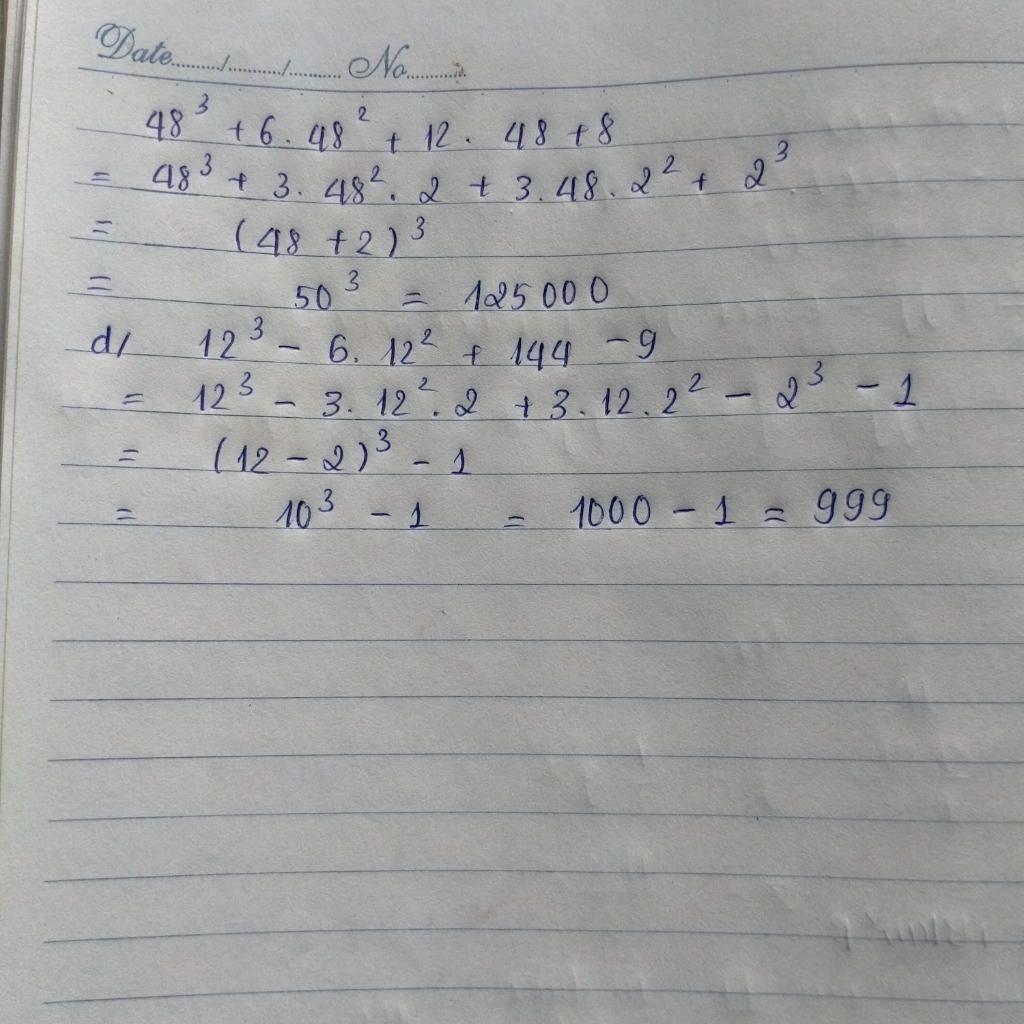 Date......../......../........ No...........
48³ + 6 . 48² + 12 . 48 + 8
= 48³ + 3 . 48² . 2 + 3 . 48 . 2² + 2³
= (48 + 2)³
= 50³ = 125000
d/ 12³ - 6 . 12² + 144 - 9
= 12³ - 3 . 12² . 2 + 3 . 12 . 2² - 2³ - 1
= (12 - 2)³ - 1
= 10³ - 1 = 1000 - 1 = 999